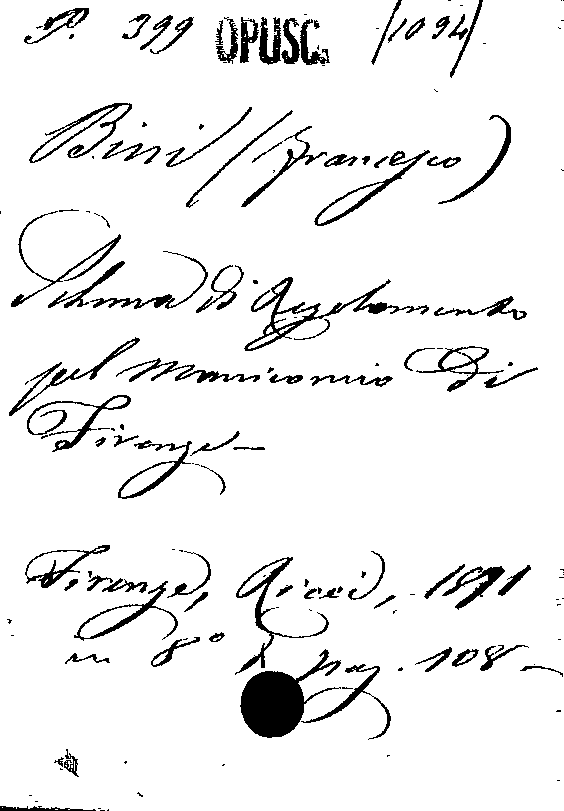 P. 399 OPUSC. (1094)
Bini (Francesco)
Schema di Regolamento
pel Manicomio di
Firenze —
Firenze, Ricci, 1891
in 8° di pag. 108 —